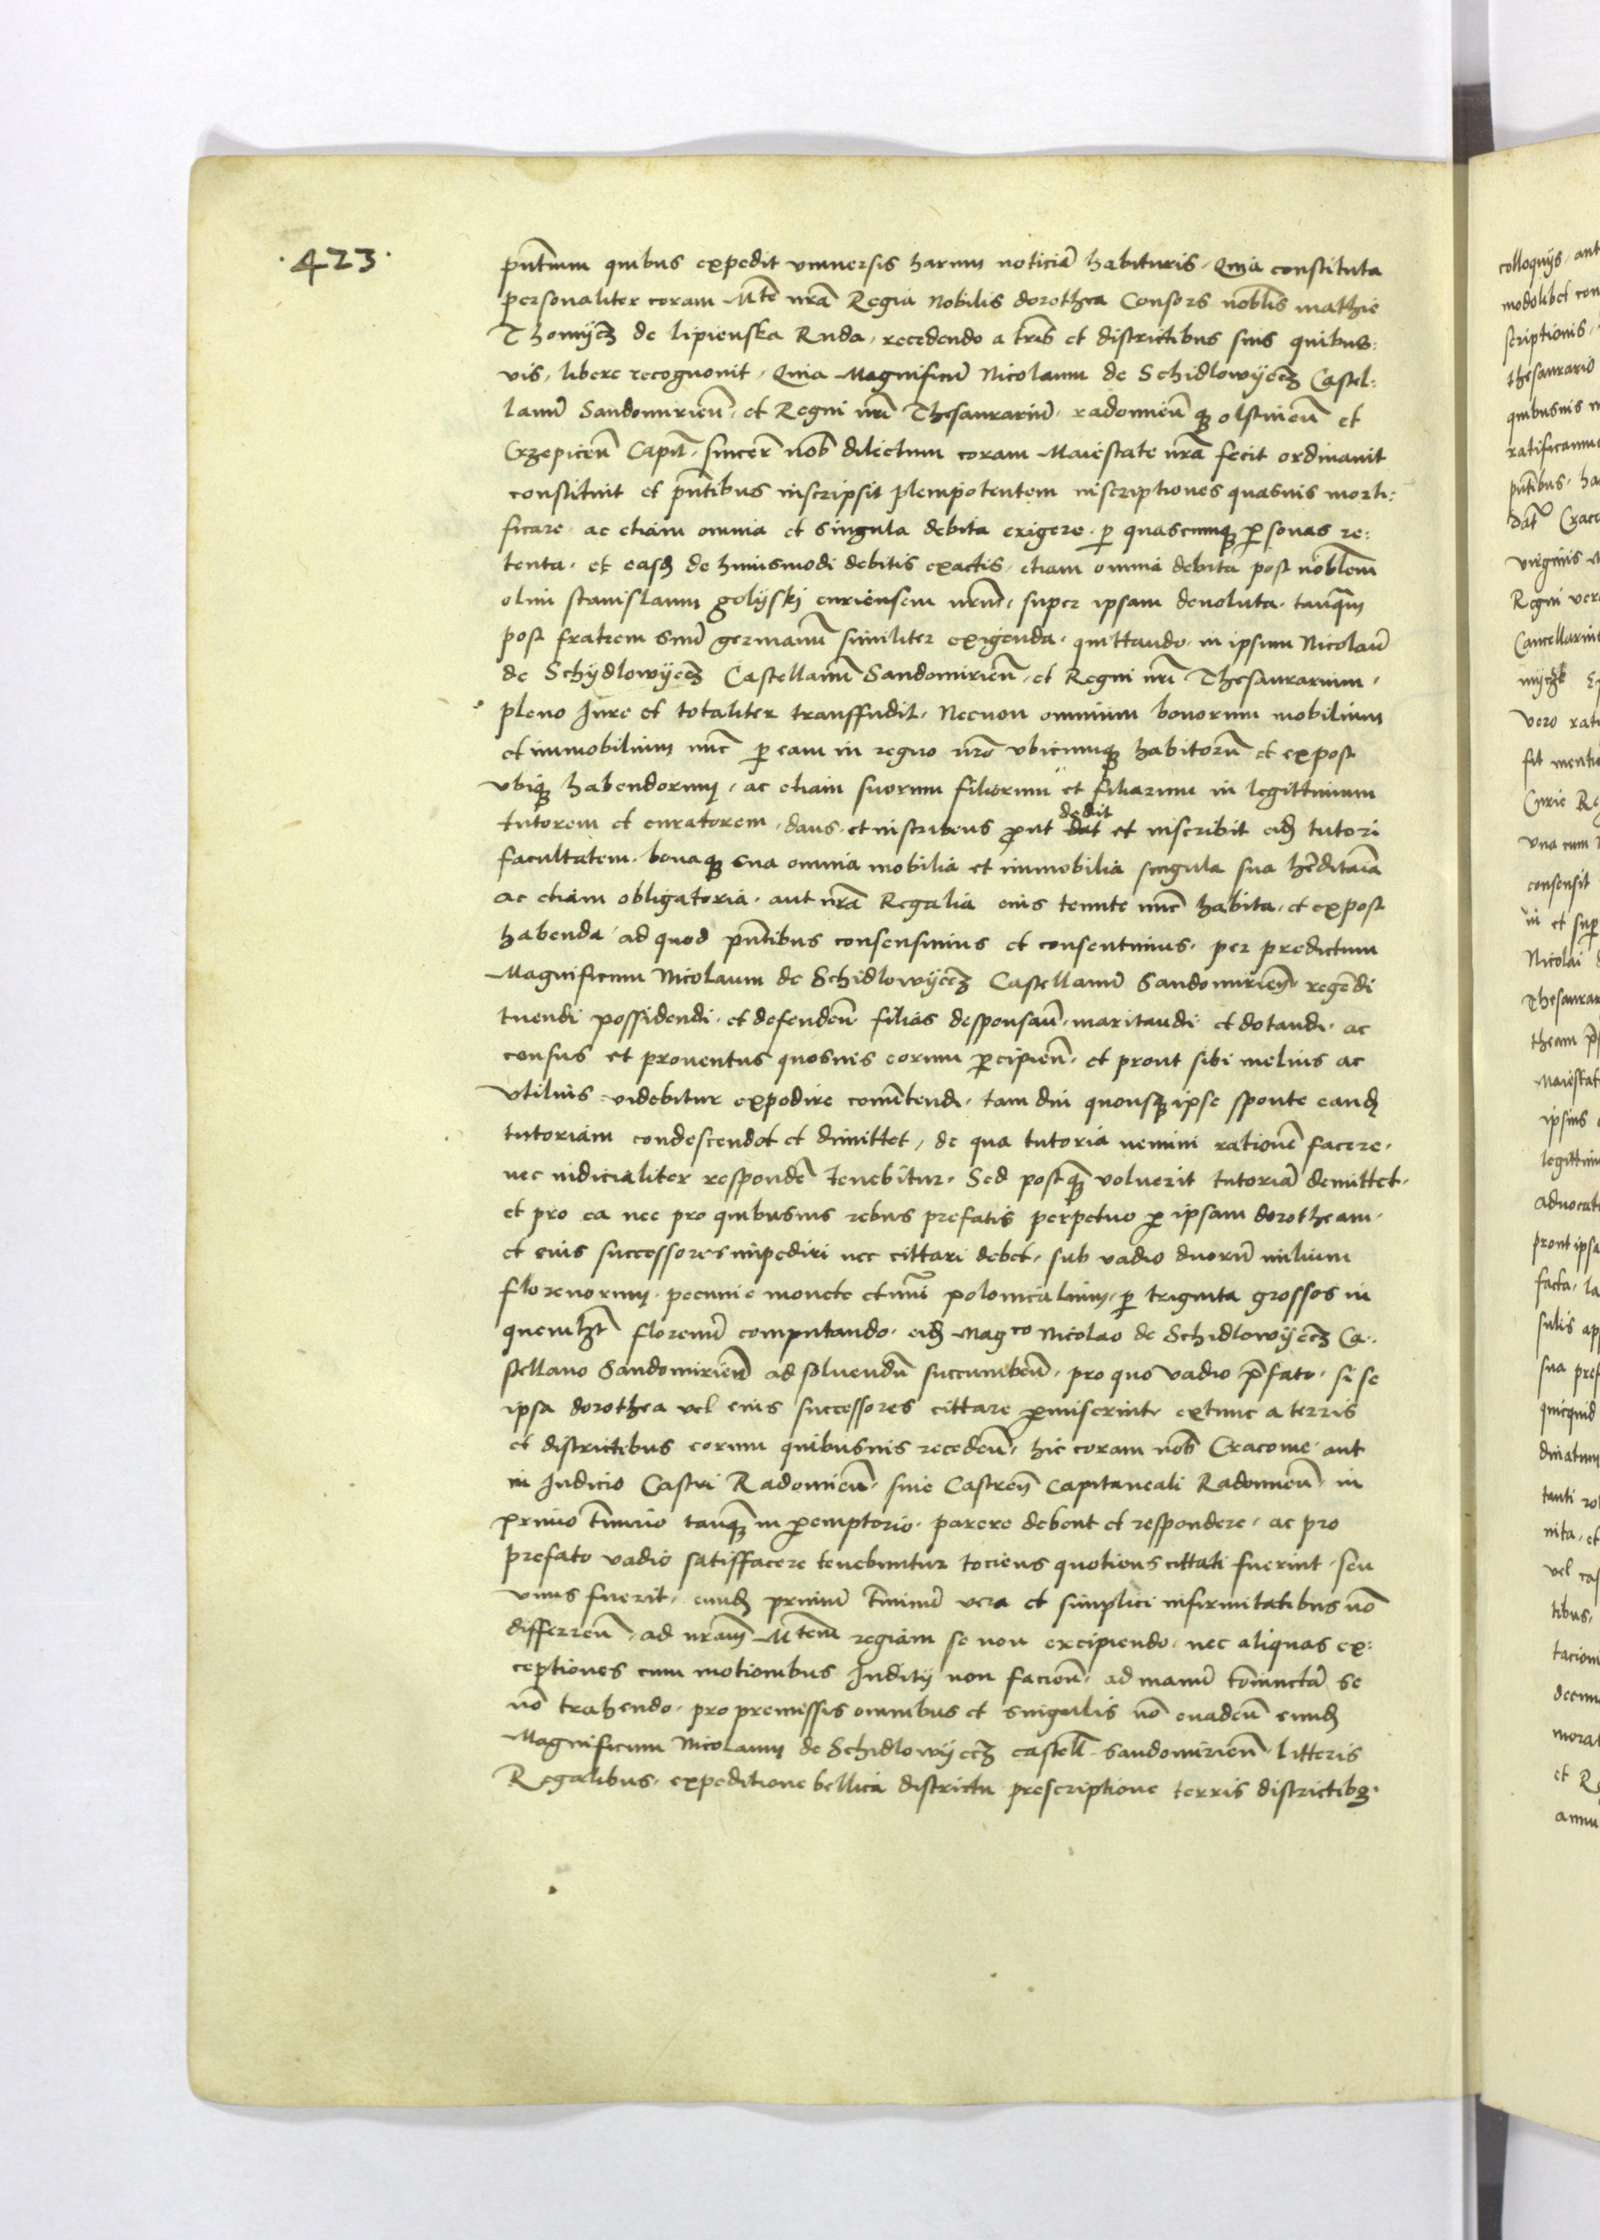 ·423·
pn̄tium quibus expedit vniuersis harum noticiā habituris, Quia constituta
personaliter coram Mte nr̄a Regia Nobilis dorothea Consors nobl̄is mathie
Thomijecz de lipienska Ruda, recedendo a tr̄is et districtibus suis quibus:
vis, libere recognouit, Quia Magnificū Nicolaum de Schidlowyecz Castel:
lanū Sandomirien̄, et Regni nr̄i Thesaurariū, radomien̄ qȝ olstinen̄ et
Crzepicen̄ Capit̄, sincer̄ nob̄ dilectum coram Maiestate nr̄a fecit ordinauit
constituit et pn̄tibus inscripsit plenipotentem inscriptiones quasuis morti:
ficare, ac etiam omnia et singula debita exigere, p̱ quascumqȝ p̱sonas re:
tenta, et easd̄ de huiusmodi debitis exactis, etiam omnia debita post nobl̄em
olim stanislaum golyski curiensem nr̄um, super ipsam deuoluta, tanqȝm
post fratrem suū germanū similiter exigenda, quittando, in ipsum Nicolaū
de Schydlowyecz Castellanū Sandomirien̄, et Regni nr̄i Thesaurarium,
pleno Jure et totaliter transffudit, Necnon omnium bonorum mobilium
et immobilium nūc p̱ eam in regno nr̄o vbicumqȝ habitorū et expost
vbiqȝ habendorum, ac etiam suorum filiorum et filiarum in legittimum
tutorem et curatorem, dans, et inscribens ꝓut dat dedit et inscribit eid̄ tutori
facultatem, bonaqȝ sua omnia mobilia et immobilia singula sua hēditaīa
ac etiam obligatoria, aut nr̄a Regalia eius tenute nūc habita, et expost
habenda, ad quod pn̄tibus consensimus et consentimus, per predictum
Magnificum Nicolaum de Schidlowyecz Castellanū Sandomirien̄, regēdi
tuendi possidendi, et defenden̄ filias desponsan̄, maritandi et dotandi, ac
census et prouentus quosuis eorum p̱cipien̄, et prout sibi melius ac
vtilius videbitur expedire comūtendi, tam diu quousqȝ ipse sponte eand̄
tutoriam condescendet et dimittet, de qua tutoria nemini rationē facere,
nec iudicialiter respondē tenebitur, Sed postqȝ voluerit tutoriā demittet,
et pro ea nec pro quibusuis rebus prefatis perpetuo p̱ ipsam dorotheam,
et eius successores impediri nec cittari debet, sub vadio duorū milium
florenorum, pecunie monete et nūi polonicalium, p̱ triginta grossos in
quemlȝt florenū computando, eid̄ Magco Nicolao de Schidlowyecz Ca:
stellano Sandomirien̄ ad soluendū succumben̄, pro quo vadio p̄fato, si se
ipsa dorothea vel eius successores cittare p̱miserint, extunc a terris
et districtibus eorum quibusuis receden̄, hic coram nob̄ Cracouie, aut
in Judicio Castri Radomien̄, siue Castren̄ Capitaneali Radomien̄, in
primo t̄mino tanqȝ in p̱emptorio, parere debent et respondere, ac pro
prefato vadio satisffacere tenebuntur tociens quotiens cittati fuerint, seu
vnus fuerit, eund̄ primū t̄minū vera et simplici infirmitatibus nō
differren̄, ad nr̄am Mtem regiam se non excipiendo, nec aliquas ex:
ceptiones cum motionibus Juditij non facien̄, ad manū cōiunctā se
nō trahendo, pro premissis omnibus et singulis nō euaden̄ eund̄
Magnificum Nicolaum de Schidlowyecz castell̄ Sandomirien̄ litteris
Regalibus, expeditione bellica districtu prescriptione terris districtibȝ,